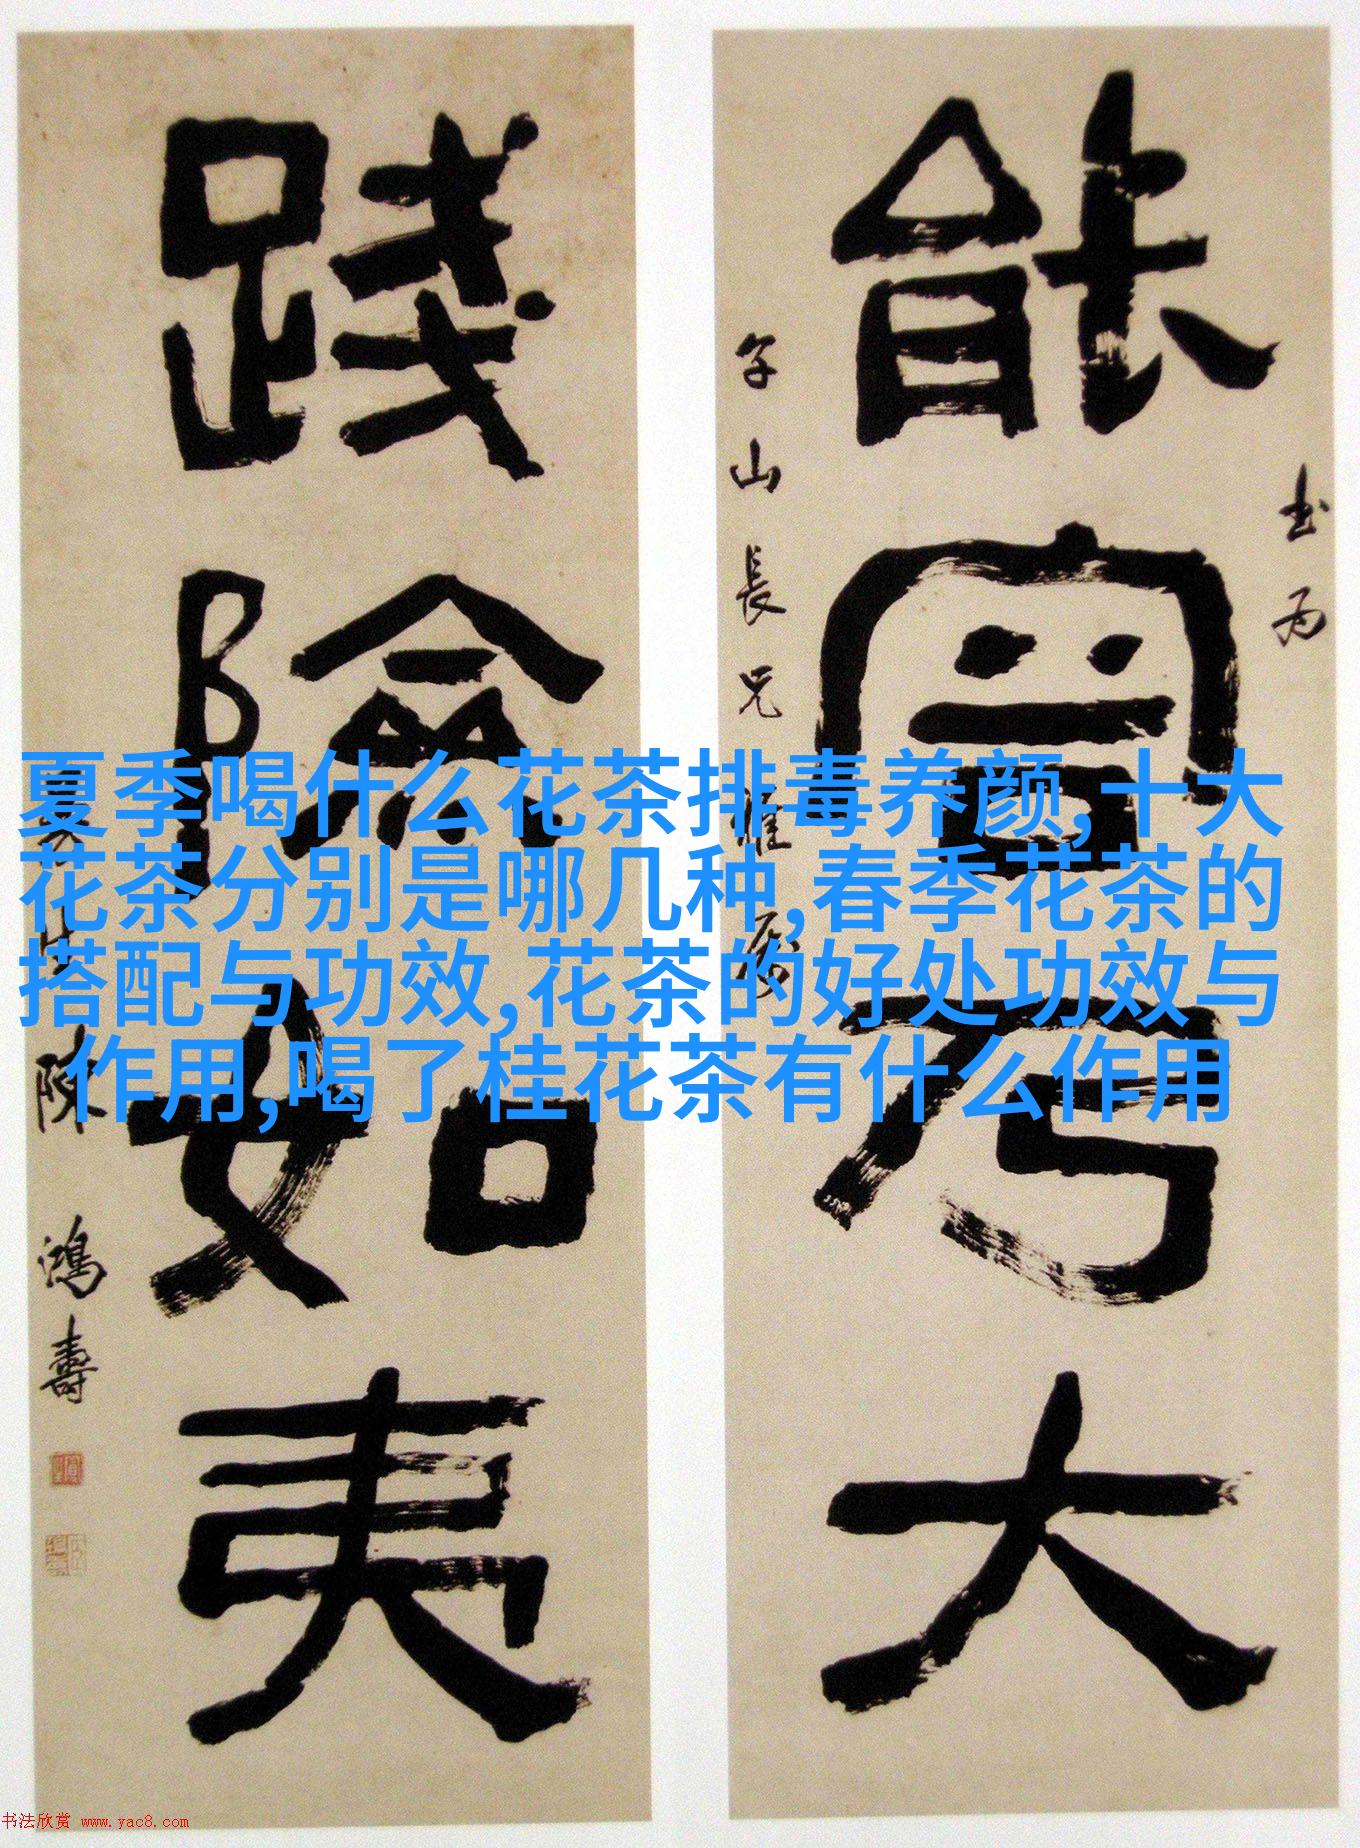 能容乃大
書為
山長兄雅屬
踐險如夷
曼生陳鴻壽
夏季喝什么花茶排毒养颜,十大
花茶分别是哪几种,春季花茶的
搭配与功效,花茶的好处功效与
作用,喝了桂花茶有什么作用
书法欣赏 www.yac8.com